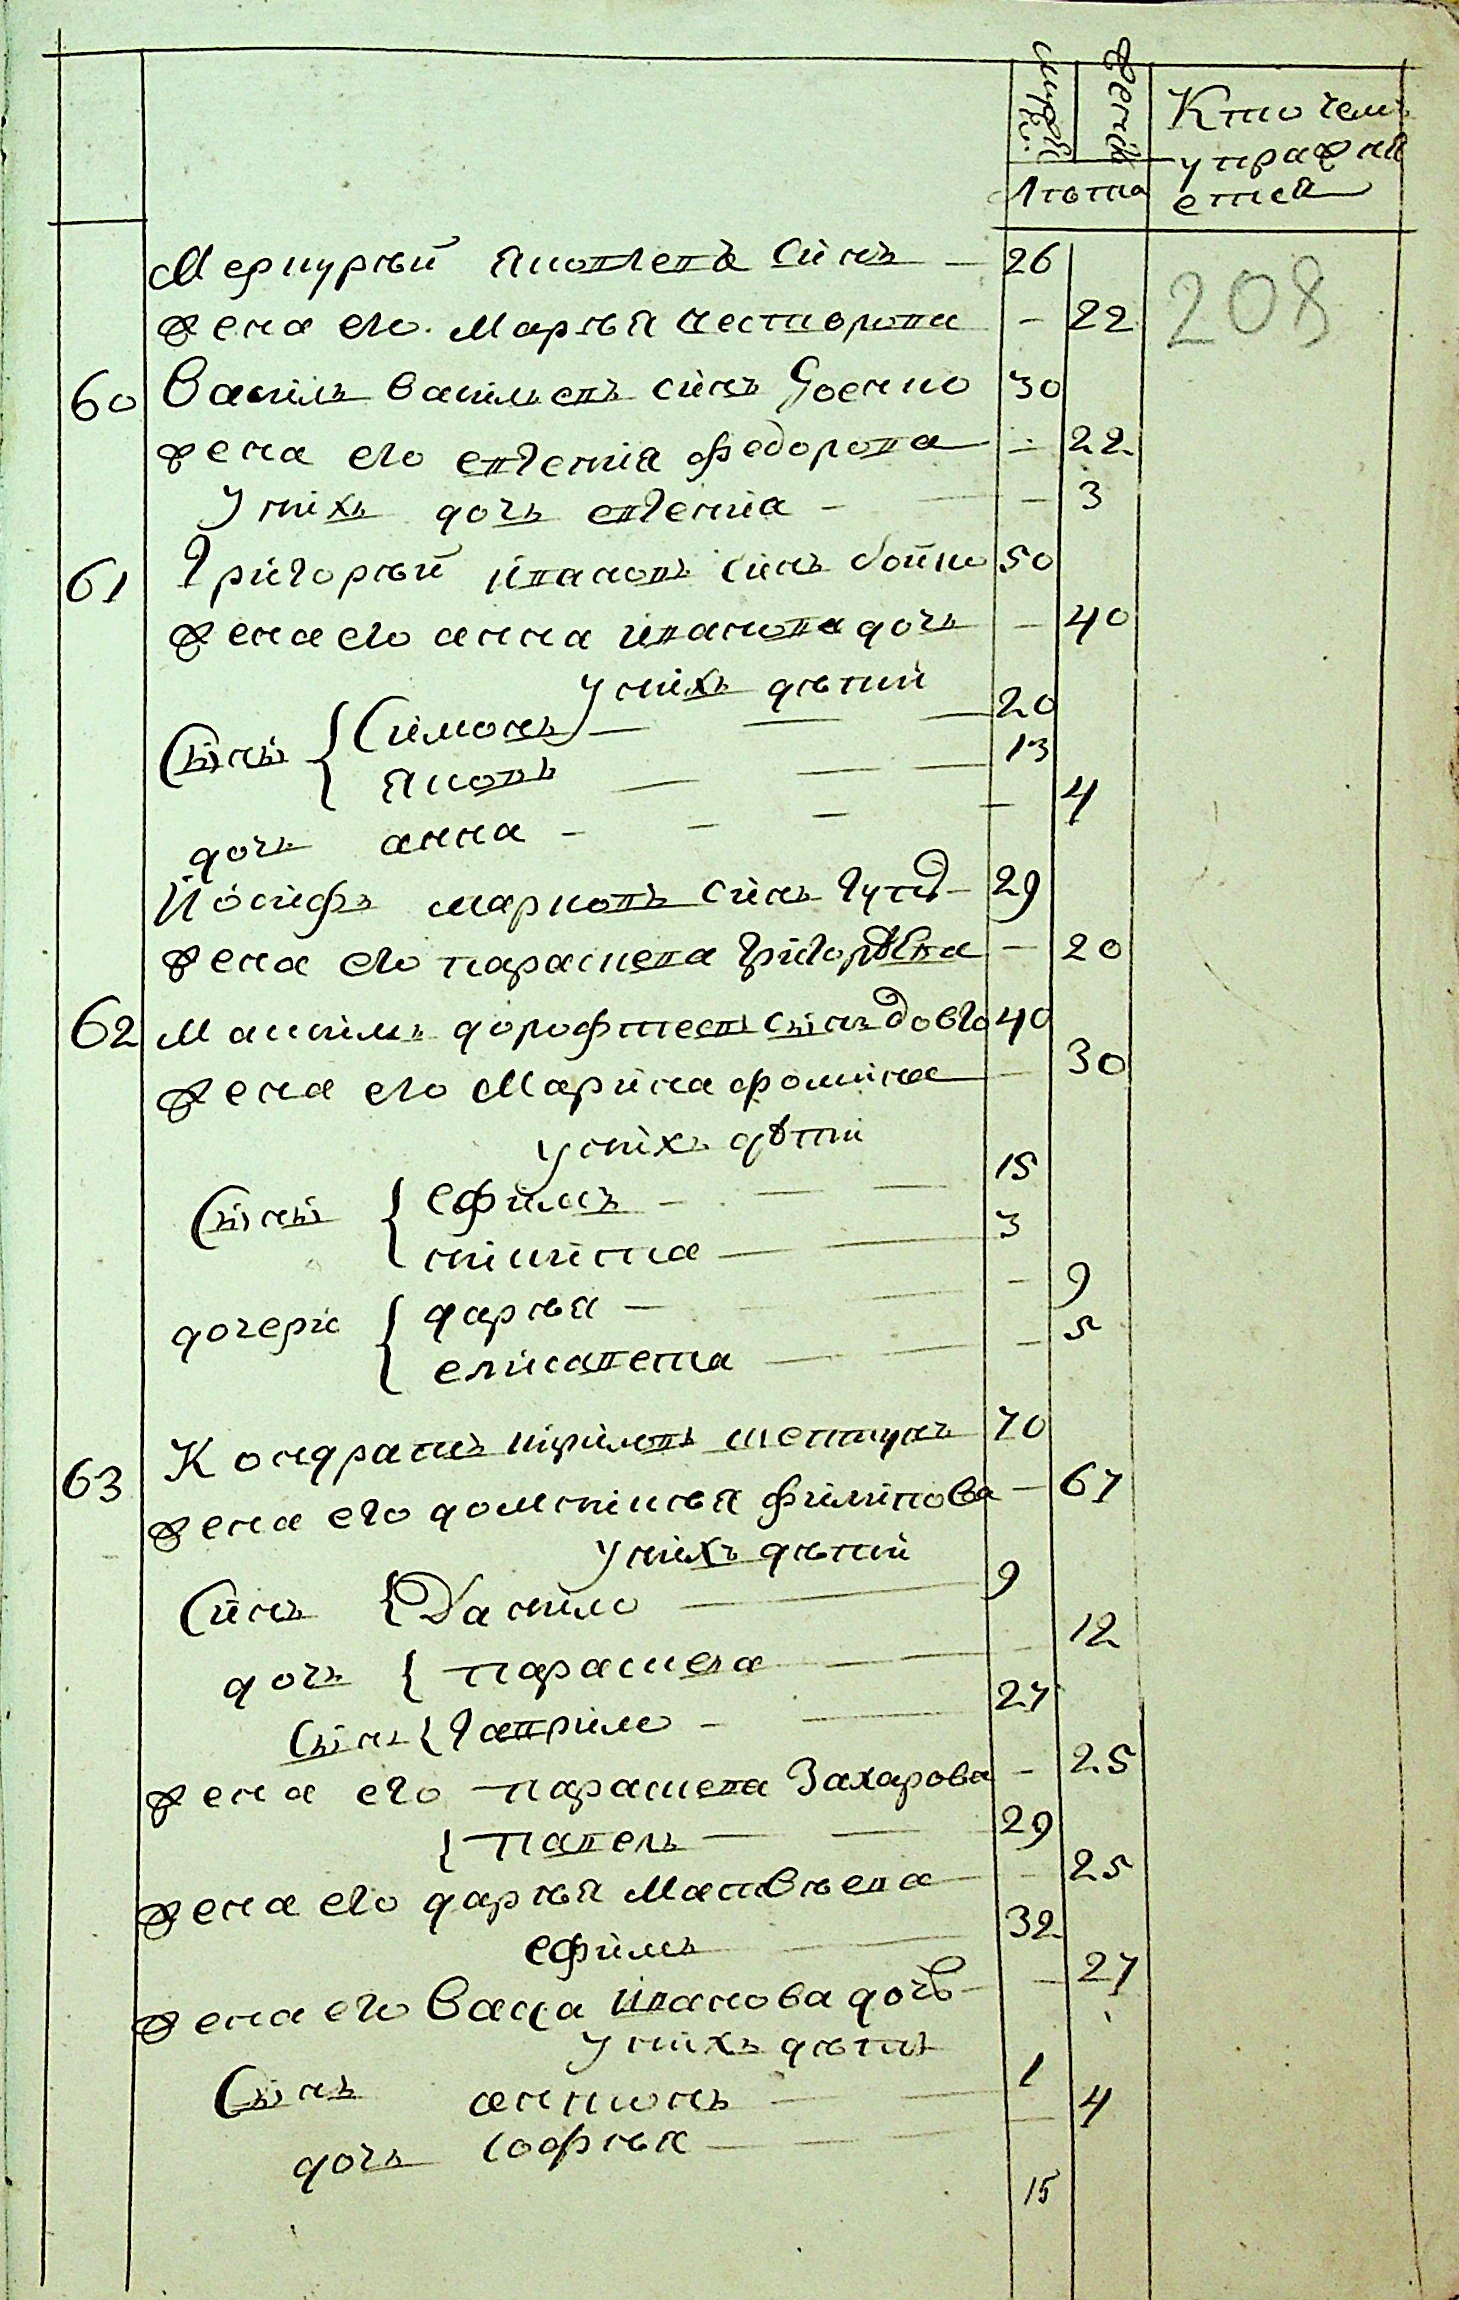 мужеск
женск
Лѣта
Кто чемъ
упражня
ется
208
Меркурѣй Яковлевъ синъ — 26
жена его Марѣя Нестерова — 22
60 Василь Васильевъ синъ 30
жена его евгенія федорова — 22
у нихъ дочь евгенія — 3
61 Григорѣй ивановъ синъ бойко 50
жена его анна иванова дочь — 40
у нихъ дѣтий
Сыны { Симонъ — 20
Яковъ — 13
дочь анна — 4
Йосифъ марковъ синъ — 29
жена его параскева григорѣвна — 20
62 Максимъ дорофтеевъ сынъ довго 40
жена его Марина фомина — 30
у нихъ дѣти
Сыны { ефимъ — 15
никита — 3
дочери { дарѣя — 9
елисавета — 5
63 Кондратъ кириловъ шептунъ 70
жена его домникѣя филипова — 67
у нихъ дѣтий
Синъ { Данило — 9
дочь { параскева — 12
Сынъ { гаврило — 27
жена его параскева Захарова — 25
{ павелъ — 29
жена его дарѣя Матвѣева — 25
ефимъ — 32
жена его Васса иванова дочь — 27
у нихъ дѣти
Сынъ — 1
дочь софѣя — 4
15